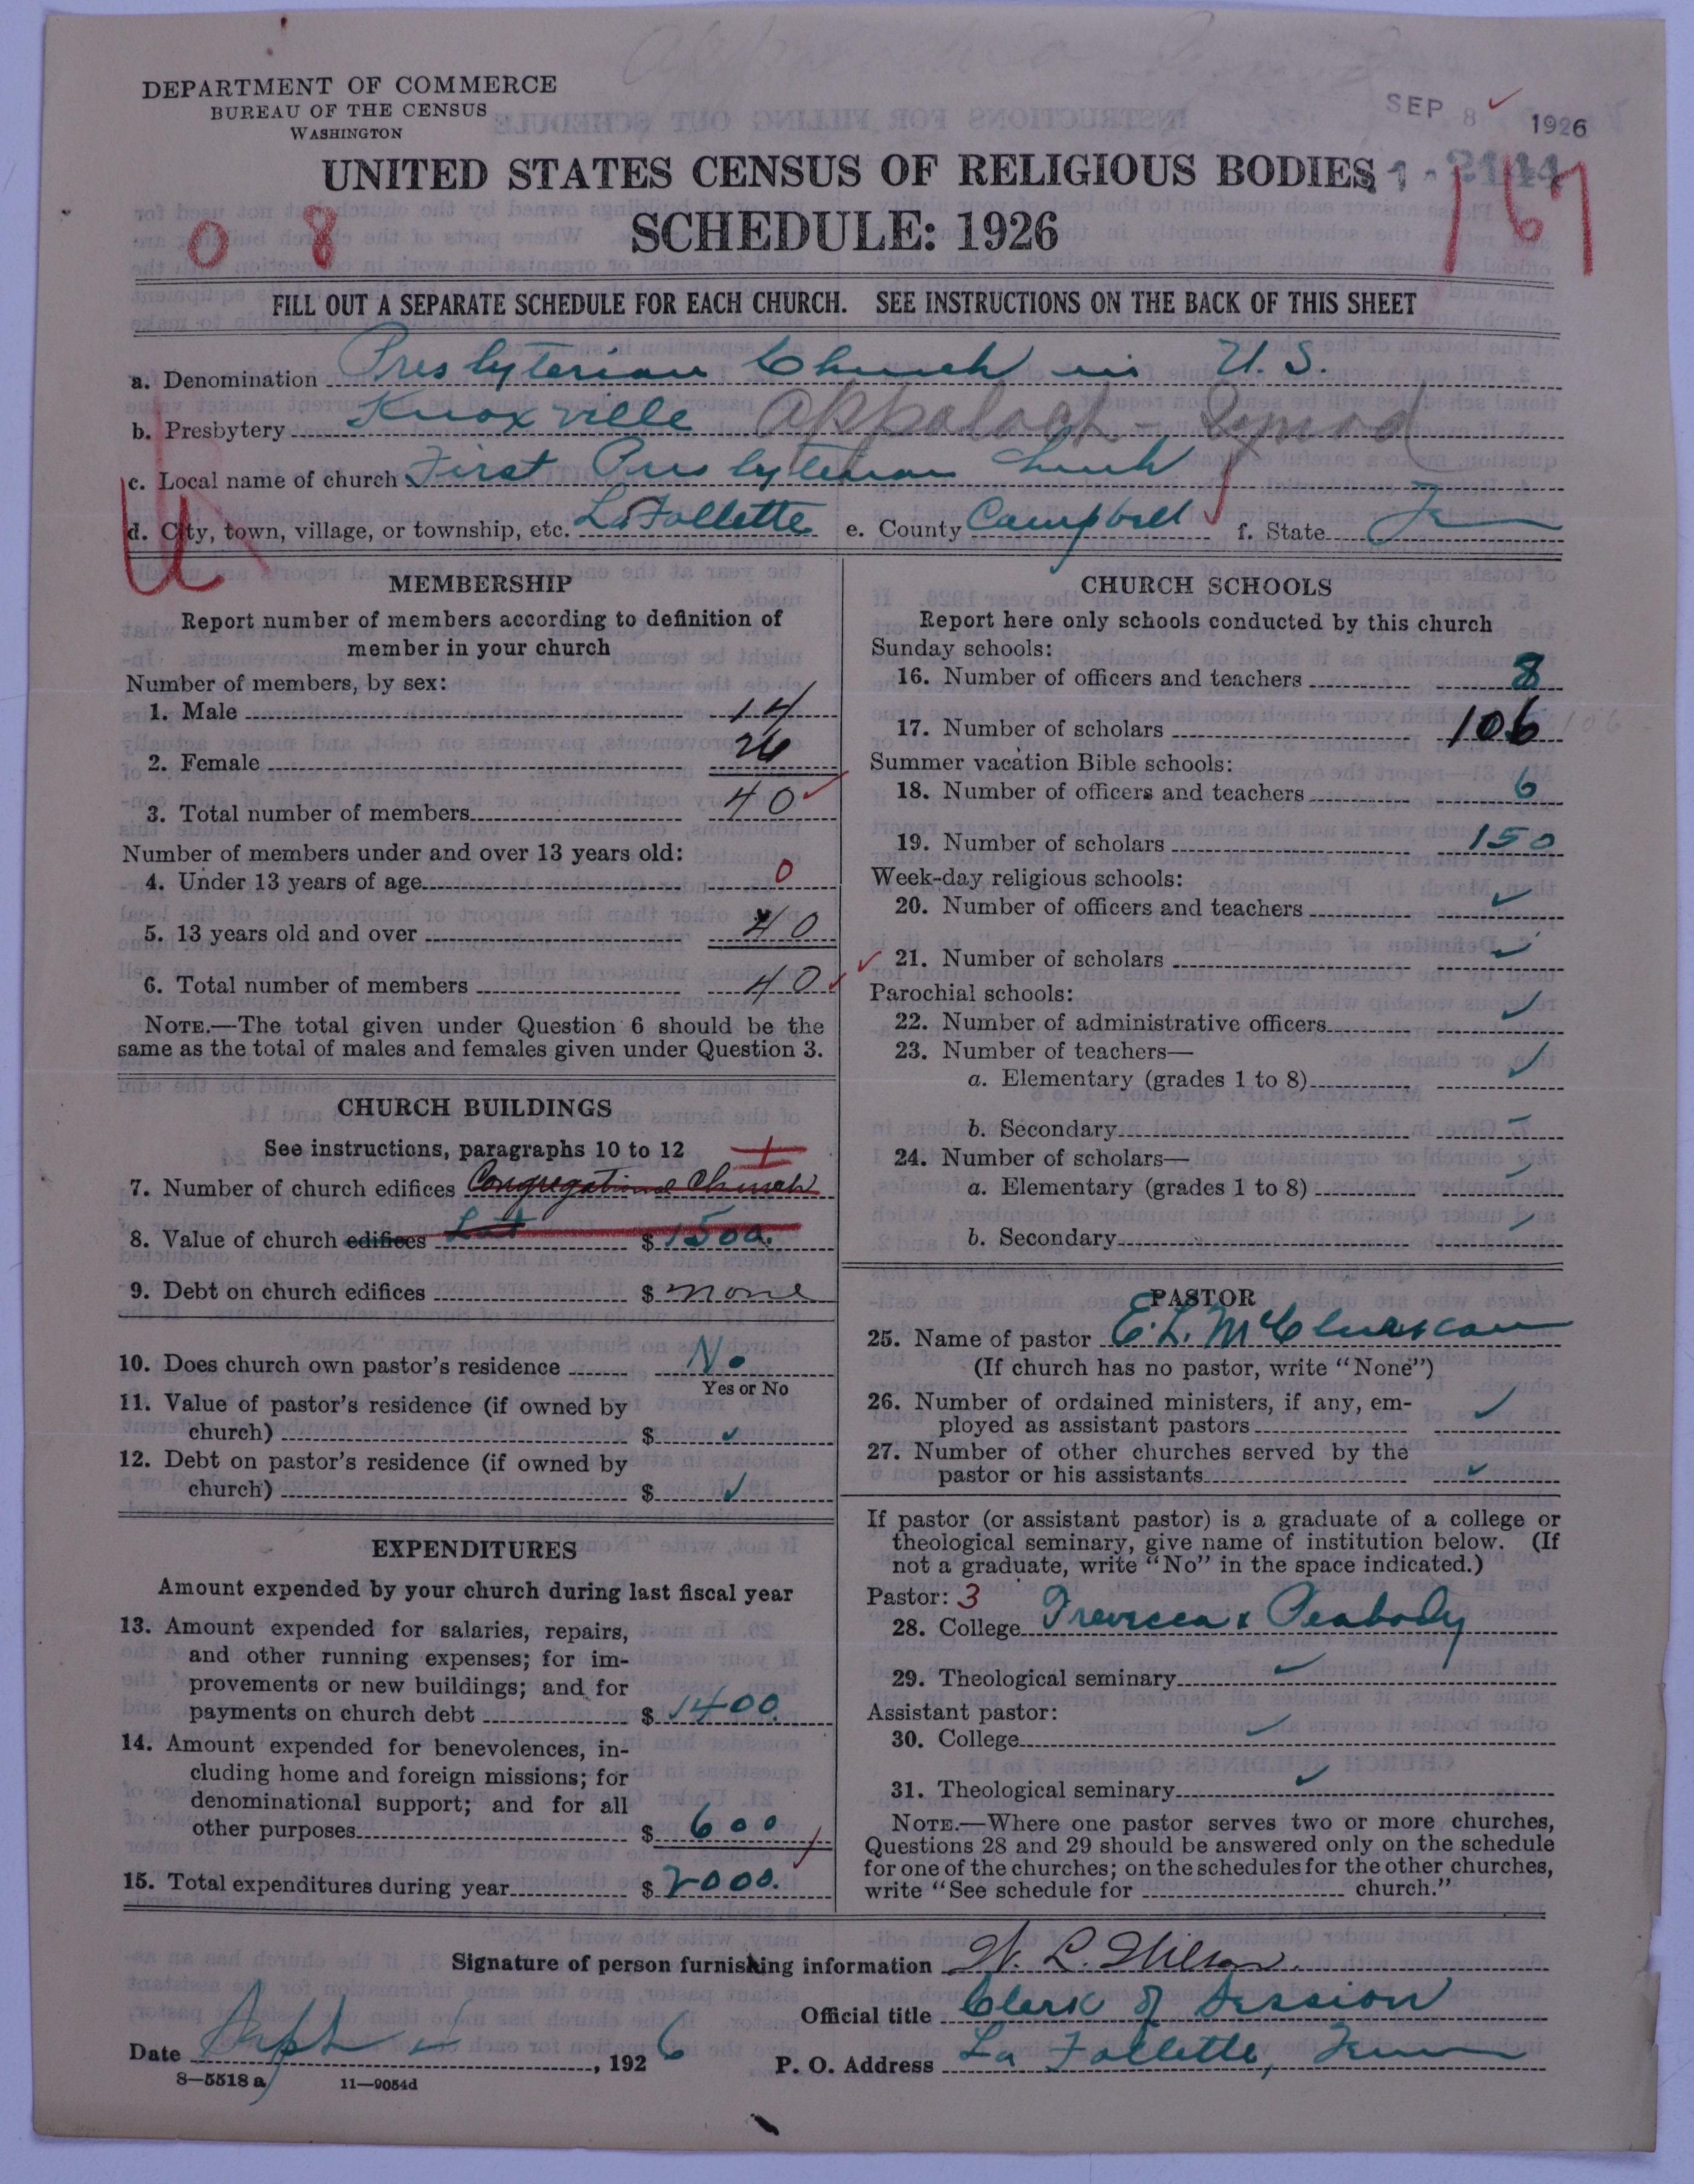 DEPARTMENT OF COMMERCE
BUREAU OF THE CENSUS
WASHINGTON
SEP 8 1926
UNITED STATES CENSUS OF RELIGIOUS BODIES
167
0 8
SCHEDULE: 1926
FILL OUT A SEPARATE SCHEDULE FOR EACH CHURCH. SEE INSTRUCTIONS ON THE BACK OF THIS SHEET
a. Denomination Presbyterian Church in U.S.
b. Presbytery Knoxville Appalach- Synod
c. Local name of church First Presbyterian Church
d. City, town, village, or township, etc. LaFollette e. County Campbell f. State Tenn
U
MEMBERSHIP
Report number of members according to definition of
member in your church
Number of members, by sex:
1. Male 14
2. Female 26
3. Total number of members 40
Number of members under and over 13 years old:
4. Under 13 years of age 0
5. 13 years old and over 40
6. Total number of members 40
NOTE.—The total given under Question 6 should be the
same as the total of males and females given under Question 3.
CHURCH BUILDINGS
See instructions, paragraphs 10 to 12
7. Number of church edifices Congregational Church
8. Value of church edifices Lot $ 1500.
9. Debt on church edifices $ none
10. Does church own pastor's residence No
Yes or No
11. Value of pastor's residence (if owned by
church) $ ✓
12. Debt on pastor's residence (if owned by
church) $ ✓
EXPENDITURES
Amount expended by your church during last fiscal year
13. Amount expended for salaries, repairs,
and other running expenses; for im-
provements or new buildings; and for
payments on church debt $ 1400.
14. Amount expended for benevolences, in-
cluding home and foreign missions; for
denominational support; and for all
other purposes $ 600
15. Total expenditures during year $ 2000.
CHURCH SCHOOLS
Report here only schools conducted by this church
Sunday schools:
16. Number of officers and teachers 8
17. Number of scholars 106
Summer vacation Bible schools:
18. Number of officers and teachers 6
19. Number of scholars 150
Week-day religious schools:
20. Number of officers and teachers ✓
21. Number of scholars ✓
Parochial schools:
22. Number of administrative officers ✓
23. Number of teachers—
a. Elementary (grades 1 to 8) ✓
b. Secondary
24. Number of scholars—
a. Elementary (grades 1 to 8)
b. Secondary
PASTOR
25. Name of pastor E. L. McCluskan
(If church has no pastor, write "None")
26. Number of ordained ministers, if any, em-
ployed as assistant pastors ✓
27. Number of other churches served by the
pastor or his assistants ✓
If pastor (or assistant pastor) is a graduate of a college or
theological seminary, give name of institution below. (If
not a graduate, write "No" in the space indicated.)
Pastor: 3
28. College Trevecca & Peabody
29. Theological seminary ✓
Assistant pastor:
30. College ✓
31. Theological seminary ✓
NOTE.—Where one pastor serves two or more churches,
Questions 28 and 29 should be answered only on the schedule
for one of the churches; on the schedules for the other churches,
write "See schedule for church."
Signature of person furnishing information W. L. Wilson.
Official title Clerk of Session
Date Sept , 1926
P. O. Address La Follette, Tenn
8—5518 a 11—9054d